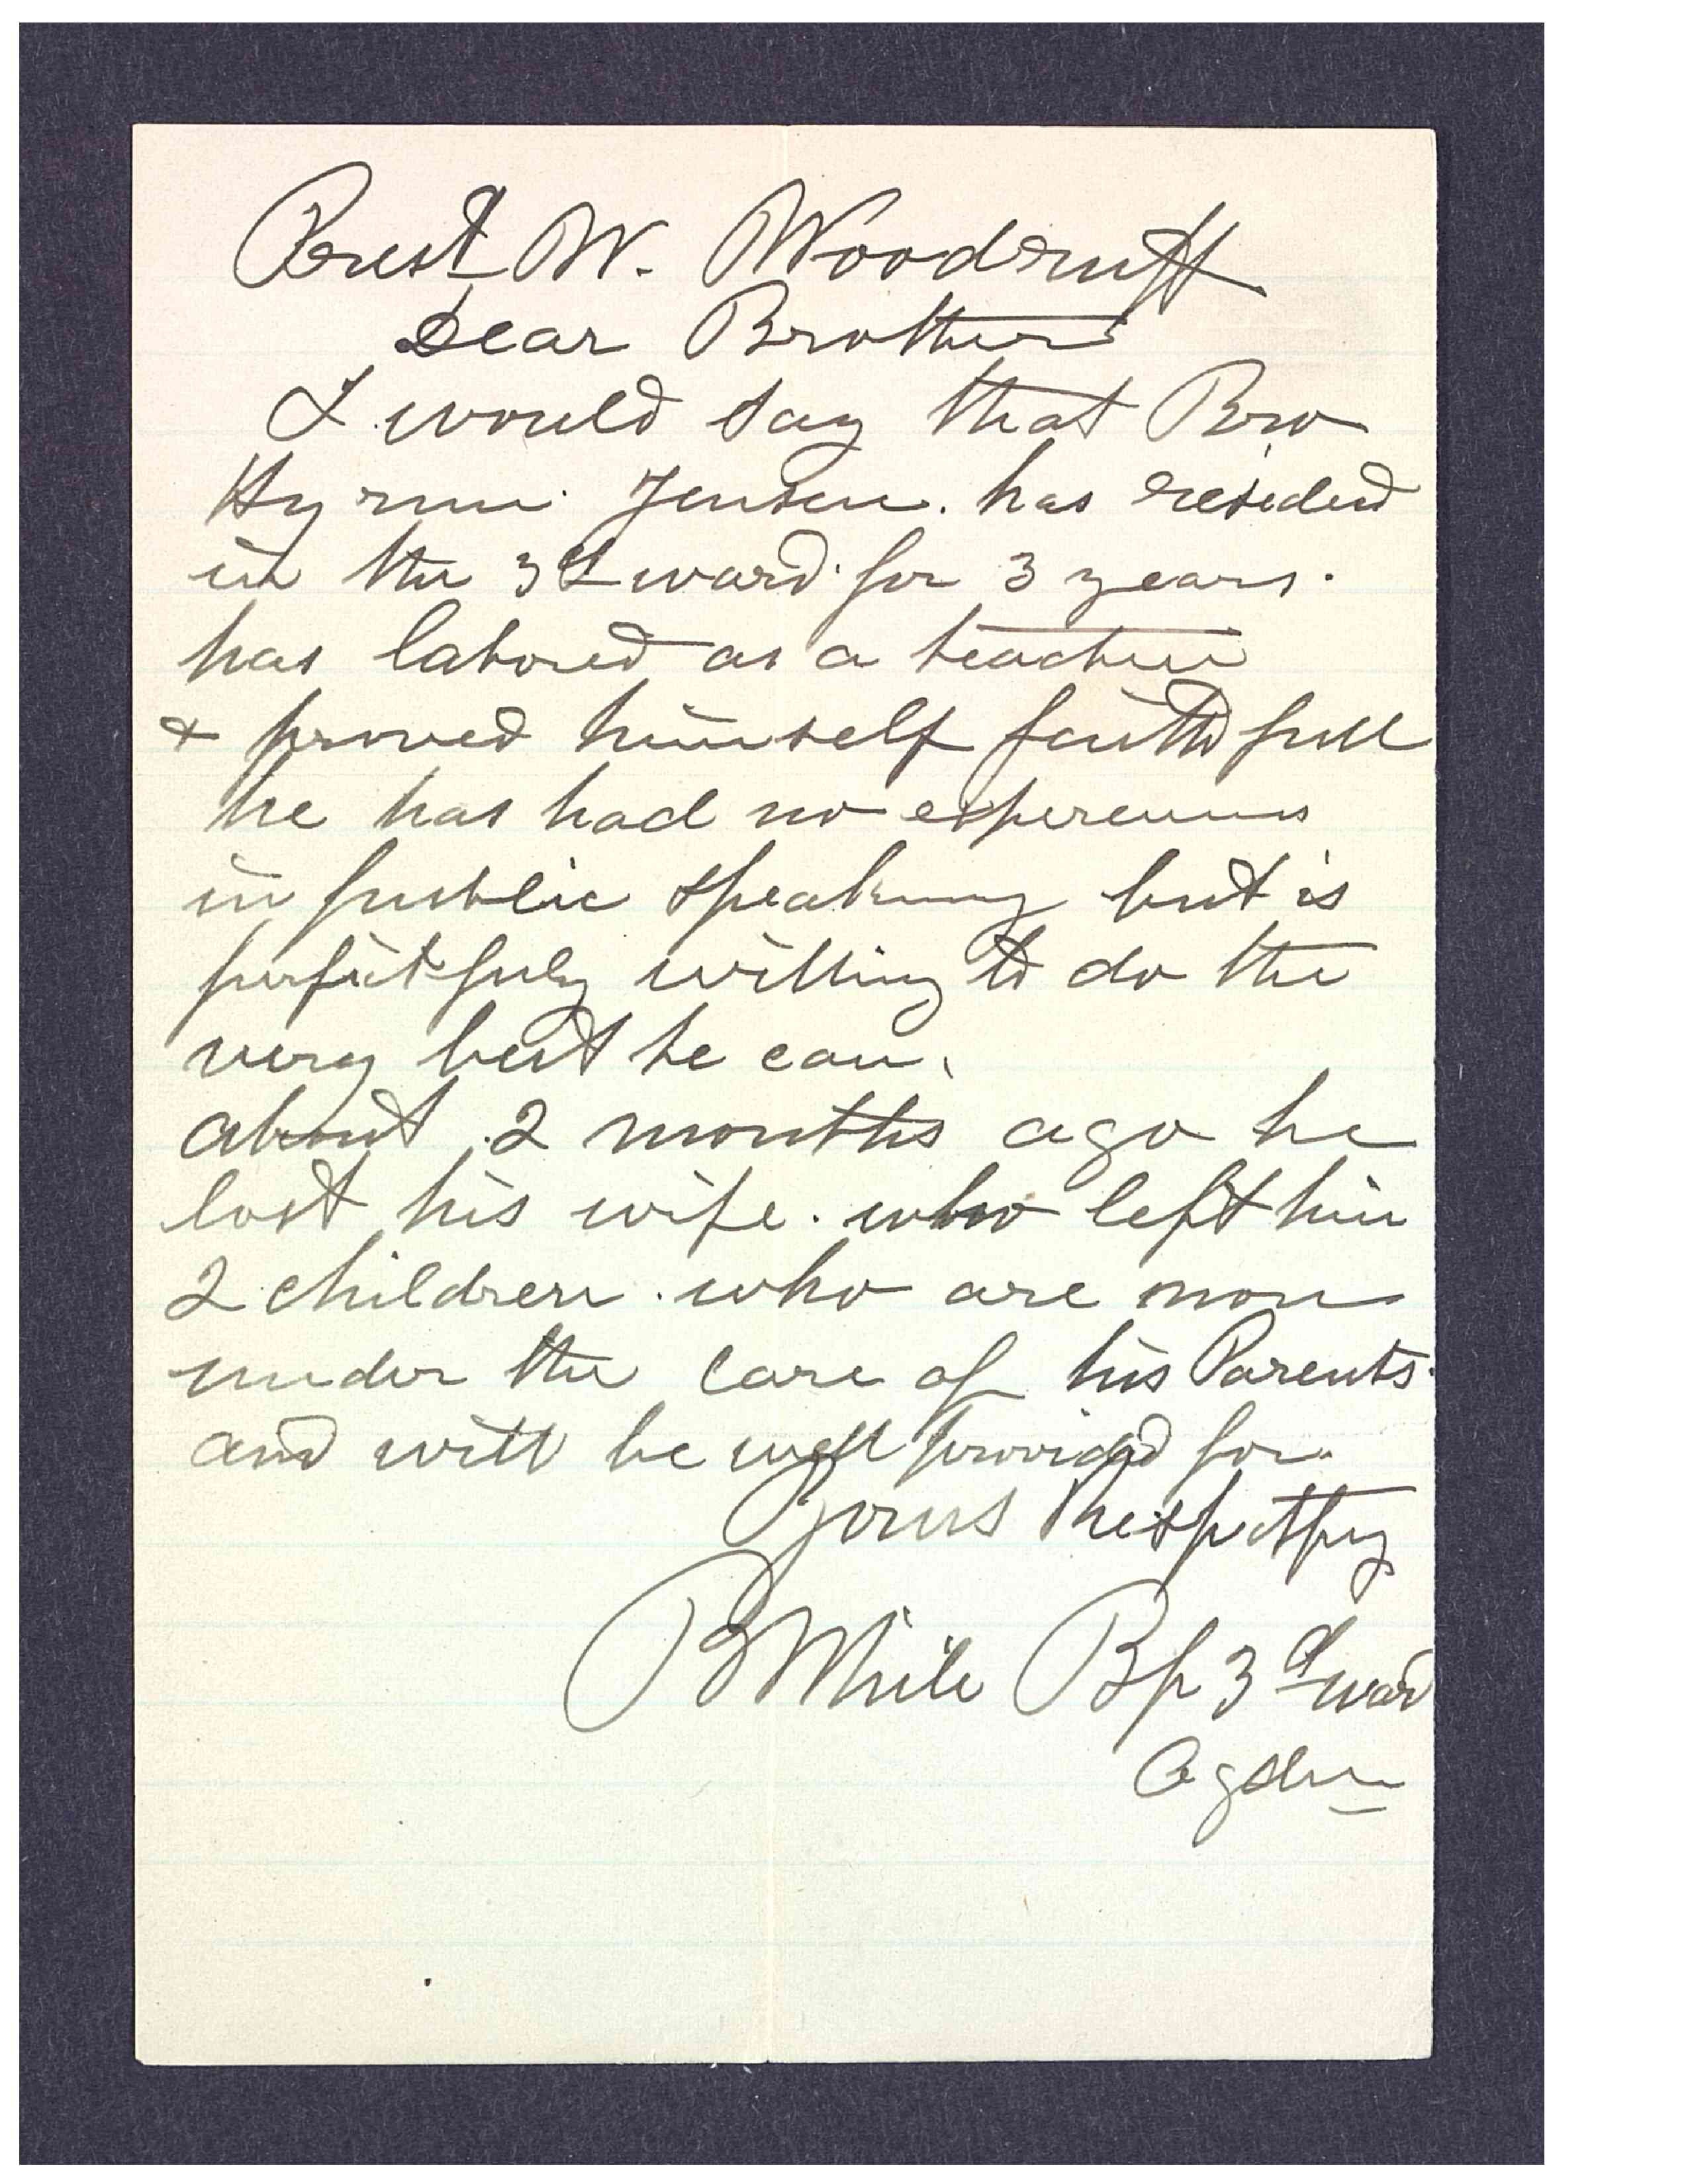 Prest W. Woodruff
Dear Brother
I would say that Bro
Hyrum Jensen. has resided
in the 3d ward for 3 years.
has labored as a teacher
& proved himself faithfull
he has had no
in public speaking but is
perfectfuly willing to do the
very best he can.
about 2 months ago he
lost his wife. who left him
2 children. who are now
under the care of his Parents.
and will be well provided for.
Yours Respetfuy
B White Bp 3d ward
Ogden